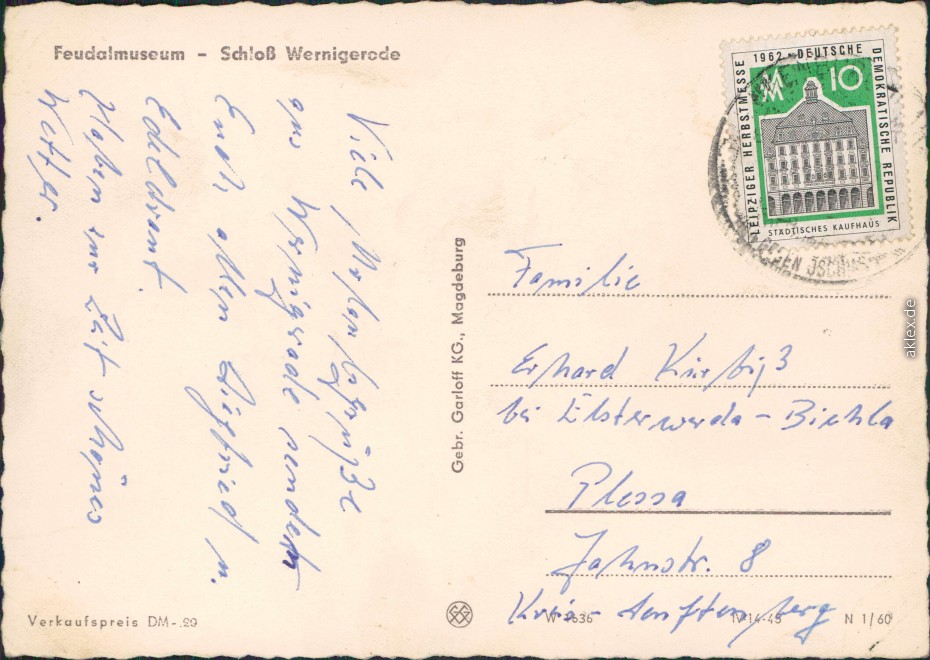 Feudalmuseum - Schloß Wernigerode
Viele Urlaubsgrüße
aus Wernigerode senden
Euch allen Siegfried u.
Edeltraut.
Haben zur Zeit schönes
Wetter.
Verkaufspreis DM -.20
Gebr. Garloff KG., Magdeburg
LEIPZIGER HERBSTMESSE 1962 · DEUTSCHE DEMOKRATISCHE REPUBLIK
MM 10
STÄDTISCHES KAUFHAUS
Familie
Erhard Kürbiß
bei Elsterwerda - Biehla
Plessa
Jahnstr. 8
Kreis Senftenberg
IV-14-45 N 1/60
aklex.de